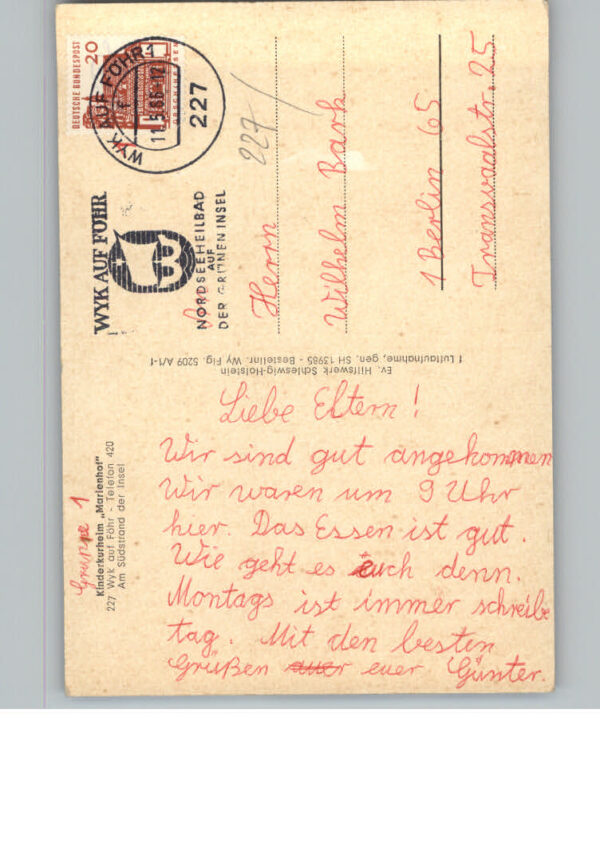 DEUTSCHE BUNDESPOST
20
WYK AUF FÖHR 1
227
227
WYK AUF FÖHR
NORDSEEHEILBAD
AUF
DER GRÜNEN INSEL
Herrn
Wilhelm Bark
1 Berlin 65
Transvaalstr. 25
Ev. Hilfswerk Schleswig-Holstein
f Luftaufnahme, gen. SH 13985 - Bestellnr. Wy Flg. 5209 A/1-1
Gruppe 1
Kinderkurheim „Marienhof"
227 Wyk auf Föhr - Telefon 420
Am Südstrand der Insel
Liebe Eltern!
Wir sind gut angekommen
Wir waren um 9 Uhr
hier. Das Essen ist gut.
Wie geht es euch denn.
Montags ist immer schreibe
tag. Mit den besten
Grüßen euer Günter.